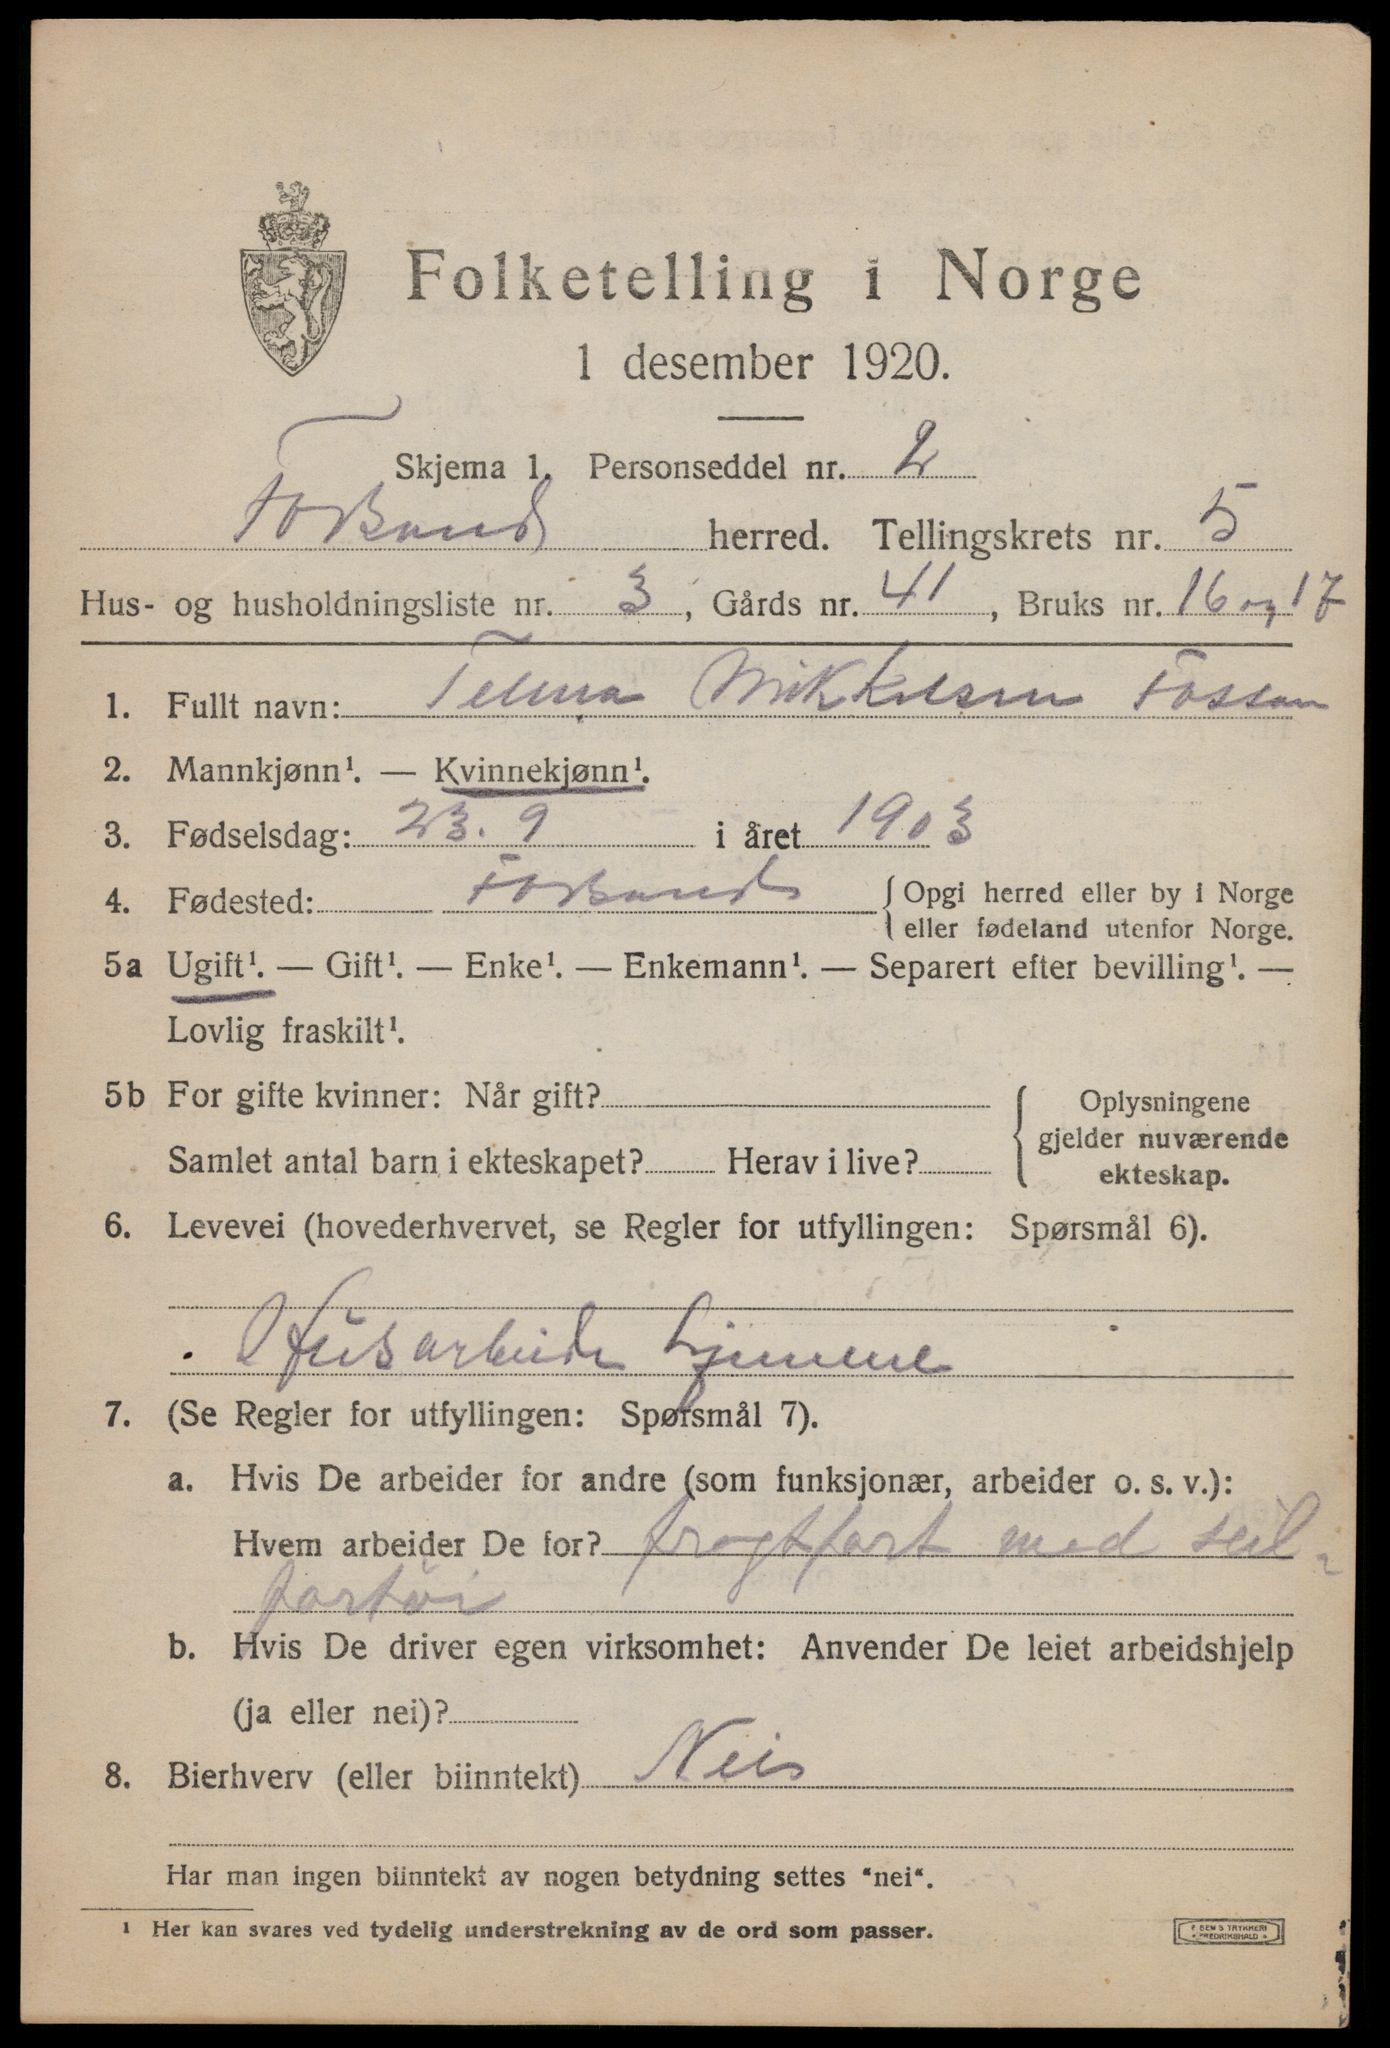 Folketelling i Norge
1 desember 1920.
Skjema 1. Personseddel nr. 2
Forsand herred. Tellingskrets nr. 5
Hus- og husholdningsliste nr. 3, Gårds nr. 41, Bruks nr. 16 og 17
1. Fullt navn: Telma Mikkelsen Fossan
2. Mannkjønn¹. — Kvinnekjønn¹.
3. Fødselsdag: 23. 9 i året 1903
4. Fødested: Forsand { Opgi herred eller by i Norge
eller fødeland utenfor Norge.
5a Ugift¹. — Gift¹. — Enke¹. — Enkemann¹. — Separert efter bevilling¹. —
Lovlig fraskilt¹.
5b For gifte kvinner: Når gift?
Samlet antal barn i ekteskapet? Herav i live?
{ Oplysningene
gjelder nuværende
ekteskap.
6. Levevei (hovederhvervet, se Regler for utfyllingen: Spørsmål 6).
Husarbeide hjemme
7. (Se Regler for utfyllingen: Spørsmål 7).
a. Hvis De arbeider for andre (som funksjonær, arbeider o. s. v.):
Hvem arbeider De for? fragtfart med seil-
fartøi
b. Hvis De driver egen virksomhet: Anvender De leiet arbeidshjelp
(ja eller nei)?
8. Bierhverv (eller biinntekt) Nei
Har man ingen biinntekt av nogen betydning settes "nei".
¹ Her kan svares ved tydelig understrekning av de ord som passer.
TRYKKERI
FREDRIKSHALD